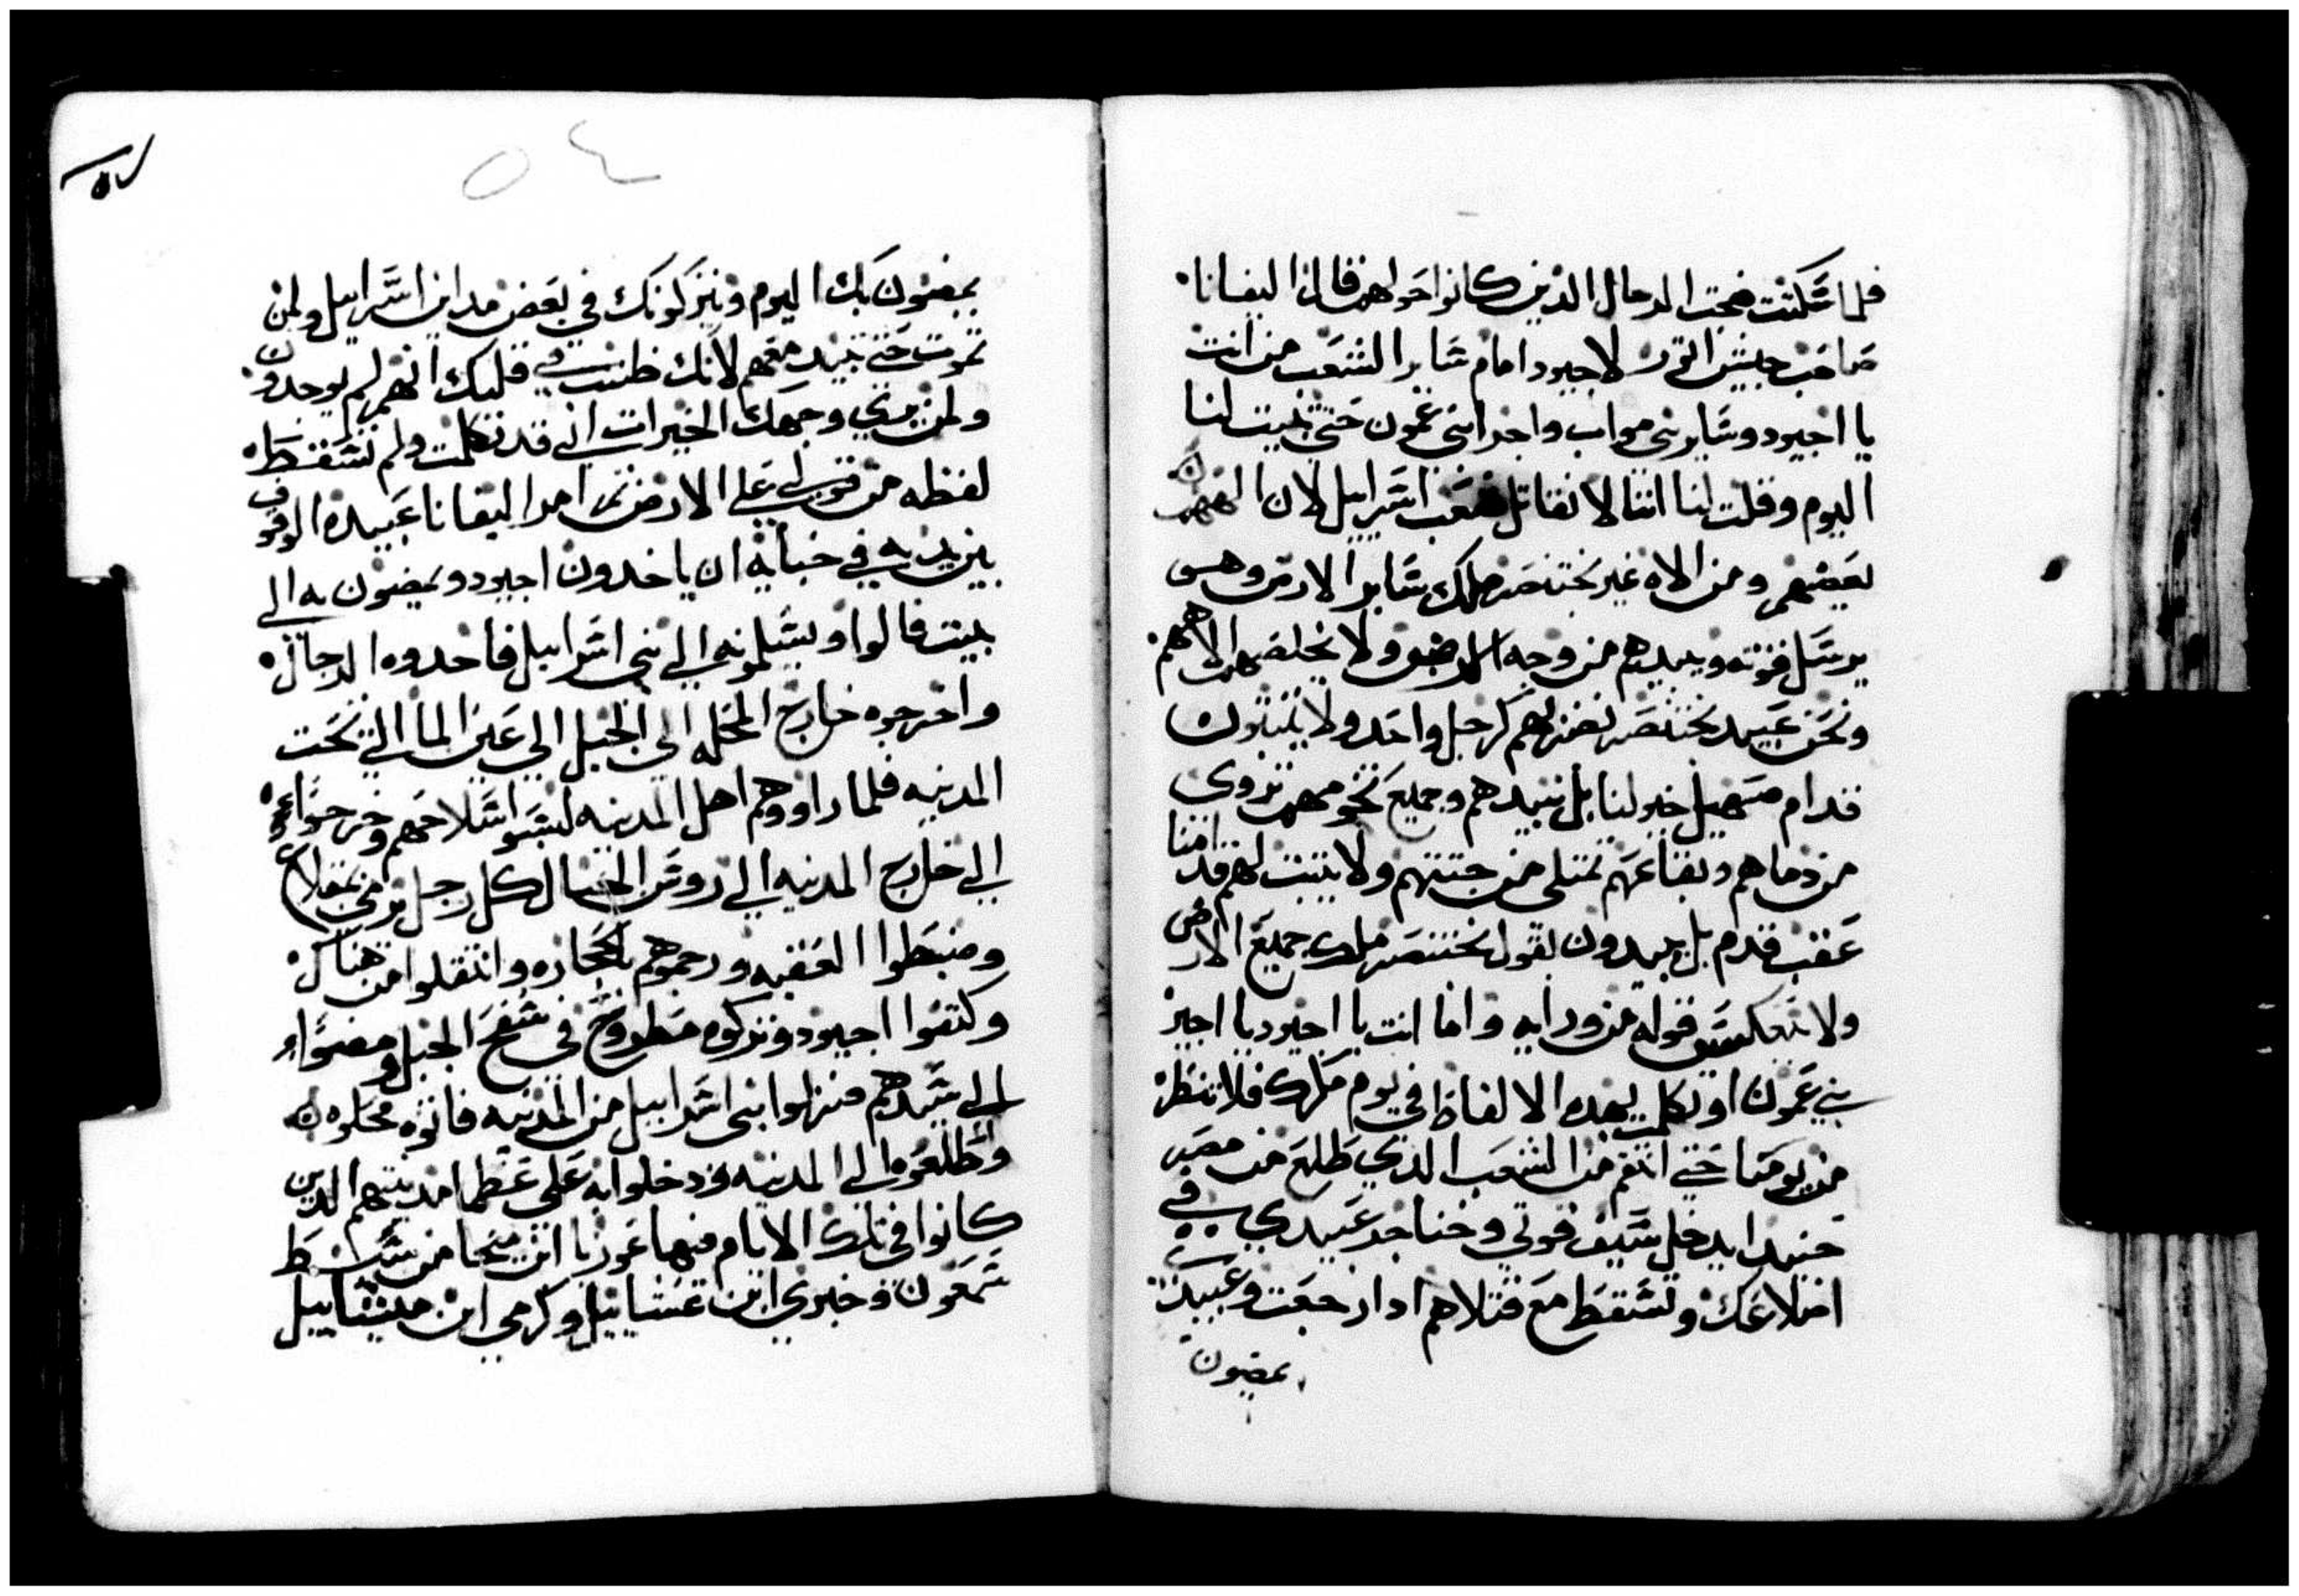 فلما سكتت ضجت الرجال الذين كانوا حولهم قال اليفانا
صاحب جيش اتور لاجيود امام ساير الشعب من انت
يا اجيود وساير بني مواب واجرا بني عمون حتى تنبيت لنا
اليوم وقلت لنا اننا لا نقاتل شعب اسراييل لان الههم
يعضهم ومن الاه غير بختنصر ملك ساير الارض وهو
يرسل قوته ويبيدهم من وجه الارض ولا يخلصهم الاههم
ونحن عبيد بختنصر نضربهم كرجل واحد ولا يثبتون
قدام صهيل خيولنا بل نبيدهم وجميع نخومهم تروى
من دماهم وبقاعهم تمتلى من جتتهم ولا يتبت لهم قدامنا
عقب قدم بل يبيدون بقول بختنصر ملك جميع الارض
ولا تعكس قوله من ورايه واما انت يا اجيود يا اجير
بني عمون او تكلمت بهده الالفاظ في يوم مكرك فلا تنظر
من يومنا حتى انتقم من الشعب الذي طلع من مصر
حنيدا يدخل سيف قوتي وخناجر عبيدي في
اضلاعك وتسقط مع قتلاهم ادا رجعت وعبيدى
يمضون
٥٤
يمضون بك اليوم ويتركونك في بعض مداين اسراييل ولن
تموت حتى تبيد معهم لانك ظننت في قلبك انهم لم يوحدون
ولمن يري وجهك الخيرات اني قد تكلمت ولم تسقط
لفظه من قولي على الارض تم امر اليفانا عبيده الوقوف
بين يديه في خبايه ان ياخدون اجيود ويمضون به الى
بيت فالوا ويسلمونه الى بني اسراييل فاخدوه الرجال
واخرجوه خارج المحله الى الجبل الى عين الما التي تحت
المدينه فلما راووهم اهل المدينه لبسوا سلاحهم وخرجوا
الي خارج المدينه الي روس الجبال كل رجل يرمي بمقلاع
وضبطوا العقبه ورجموهم بالحجاره وانتقلوا من هناك
وكتفوا اجيود وتركوه مطروح في سفح الجبل ومضوا
الي سيدهم فنزلوا بني اسراييل من المدينه فاتوه محلوه
وطلعوه الي المدينه ودخلوا به على عظما مدينتهم الدين
كانوا في تلك الايام فيها عوزيا ابن ميخا من سبط
سمعون وخبري ابن غشاييل وكرمي ابن ميشاييل